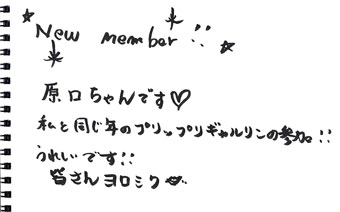 ☆New member!!☆
原口ちゃんです♡
私と同じ年のプリップリギャルリンの参加!!
うれしいです!!
皆さんヨロミク